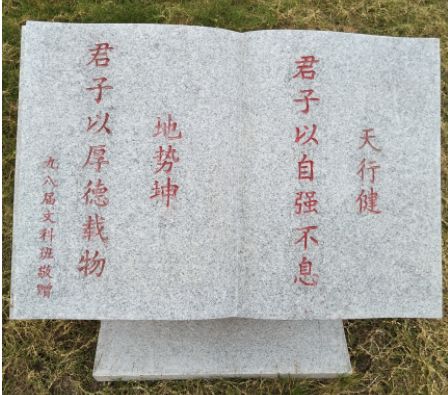 天行健
君子以自强不息
地势坤
君子以厚德载物
九八届文科班敬赠